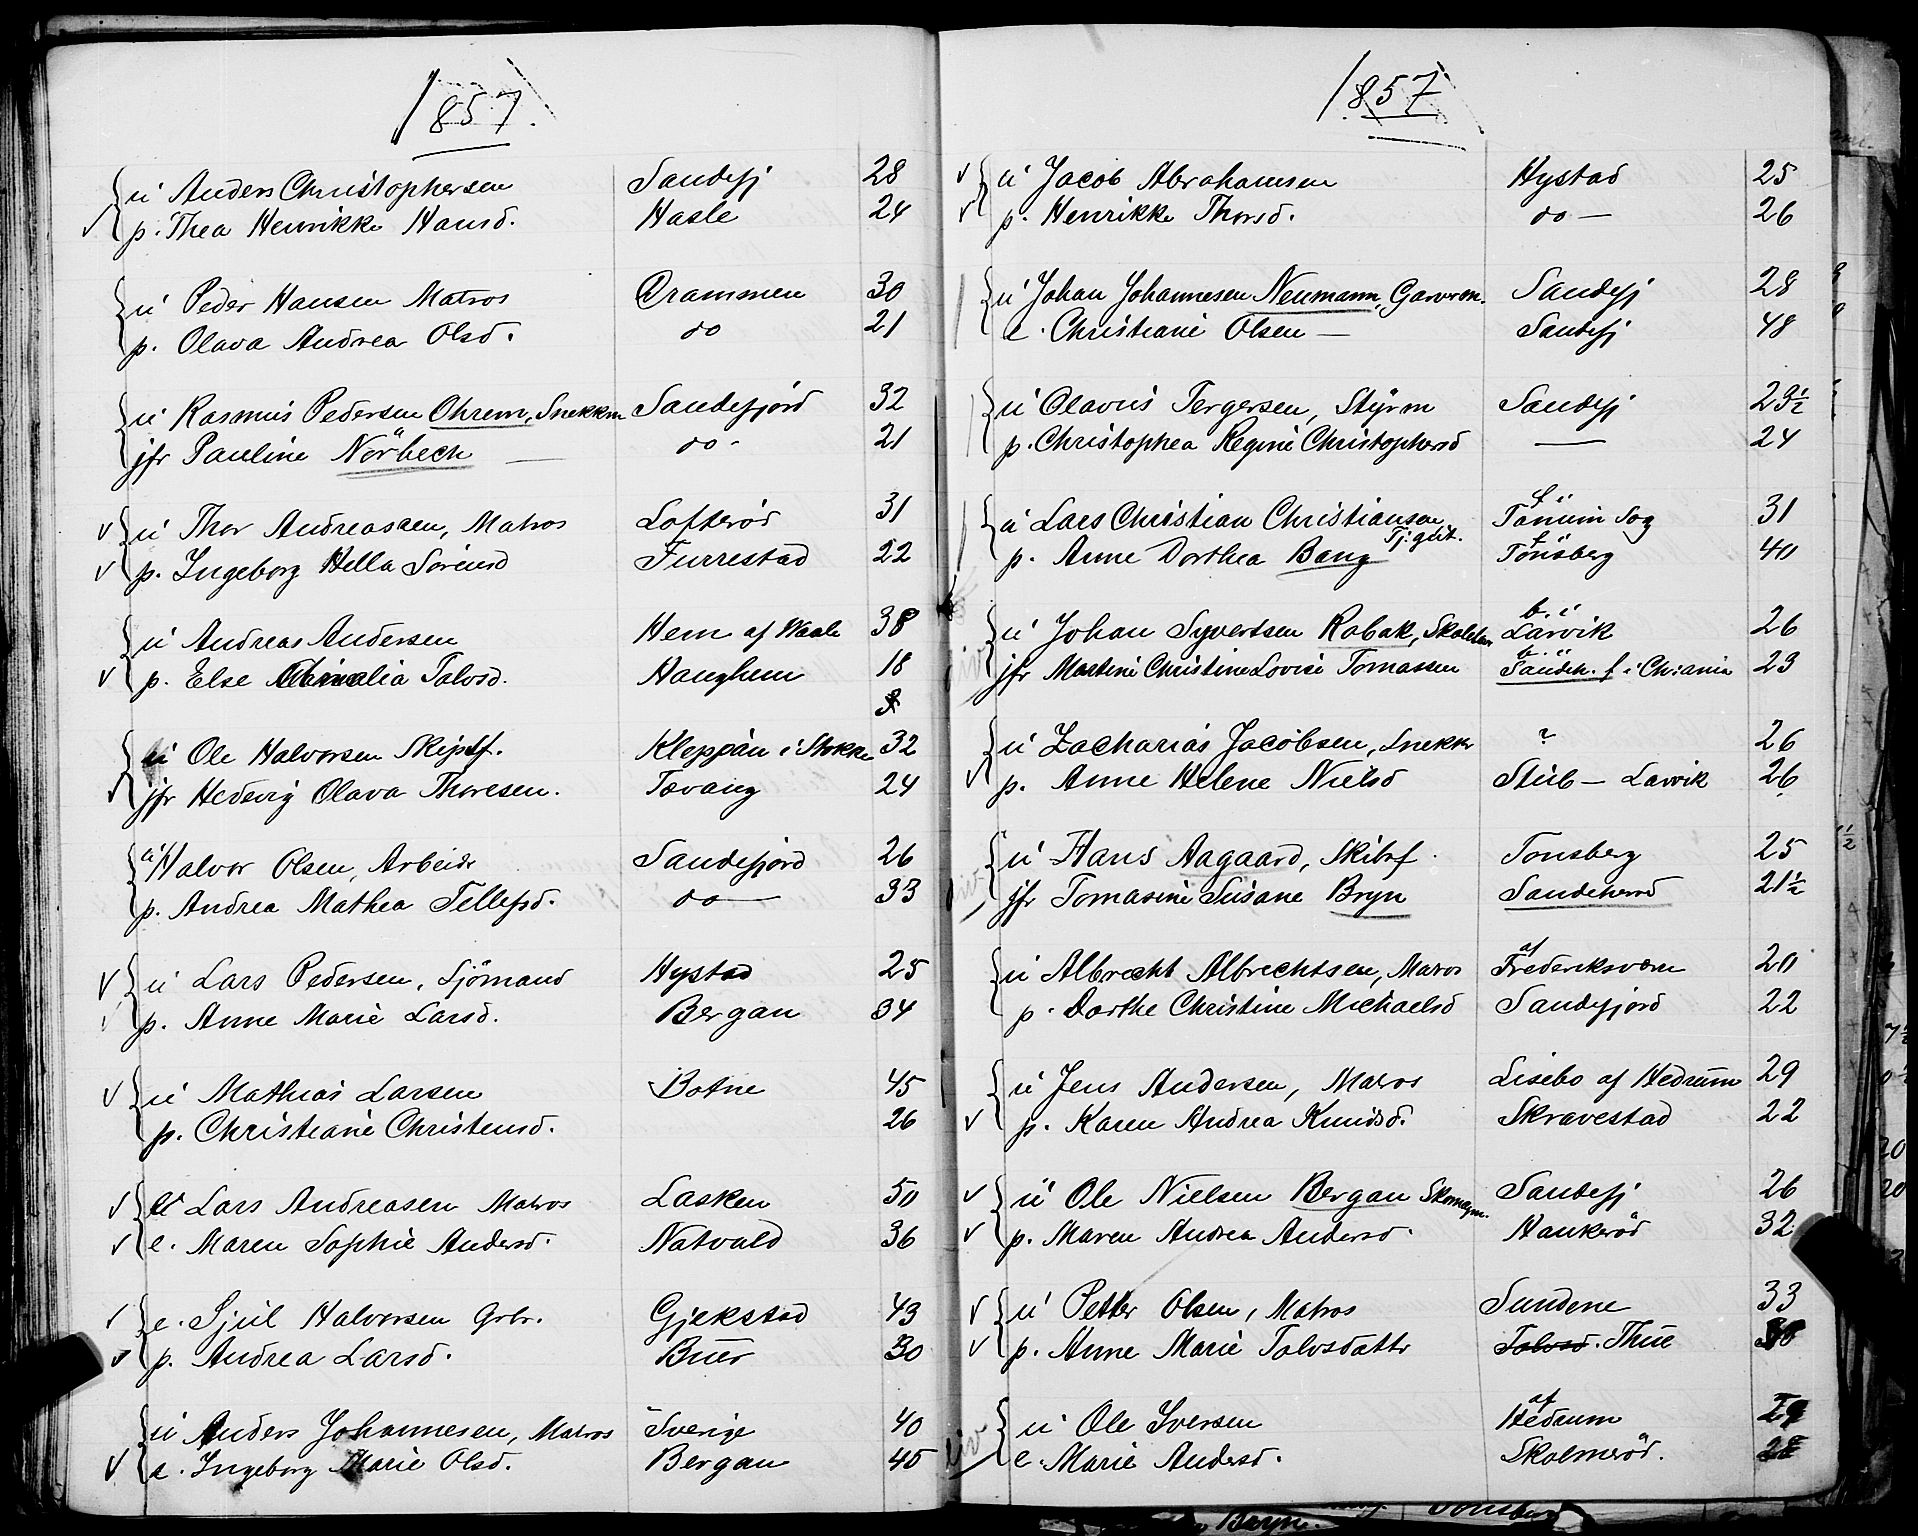 1857.
u Anders Christophersen Sandefj 28
p. Thea Henrikke Hansd. Hasle 24
u Peder Hansen Matros Drammen 30
p. Olava Andrea Olsd. do 21
u Rasmus Pedersen Ohrem, Snekkm Sandefjord 32
jfr Pauline Nörbech — do - 21
u Thor Andreasaen, Matros Lofteröd 31
p. Ingeborg Hella Sörensd Furrestad 22
u Andreas Andersen Hem af Waale 38
p. Else Talvsd. Haughem 18
u Ole Halvorsen Skipsf. Kleppan i Stokke 32
jfr Hedevig Olava Thoresen. Tævang 24
u Halvor Olsen, Arbeidr Sandefjord 26
p. Andrea Mathea Tellefsd. do — 33
u Lars Pedersen, Sjömand Hystad 25
p. Anne Marie Larsd. Bergan 34
u Mathias Larsen Botne 45
p. Christiane Christensd. 26
e Lars Andreasen Matros Lasken 50
e. Maren Sophie Andersd. Natvald 36
e. Sjul Halvorsen Grbr. Gjekstad 43
p. Andrea Larsd. Buer 30
u Anders Johannesen, Matros Sverige 40
e. Ingeborg Marie Olsd. Bergan 45
1857
u Jacob Abrahamsen Hystad 25
p. Henrikke Thorsd. do — 26
u Johan Johannesen Neumann, Garverm. Sandefj 28
e. Christiane Olsen — Sandefj 48
u Olavus Tergersen, Styrm Sandefj 23½
p. Christophea Regine Christophersd — 24
u Lars Christian Christiansen Tj.gut. f. i Tanum Sog 31
p. Anne Dorthea Bang f. i Tönsberg 40
u Johan Syvertsen Robak, b. i Larvik 26
jfr Martine Christine Lovise Tomassen b. i Sandeh. f. i Chr:ania 23
u Zacharias Jacobsen, Snekkr ? 26
p. Anne Helene Nielsd Stub — Larvik 26
u Hans Aagaard, Skibsf. Tonsberg 25
jfr Tomasine Susane Bryn Sandeherred 21½
u Albrecht Albrechtsen, Matros af Frederiksværn 20
p. Dorthe Christine Michaelsd Sandefjord 22
u Jens Andersen, Matros Lisebo af Hedrum 29
p. Karen Andrea Knudsd. Skravestad 22
u Ole Nielsen Bergan Skomagm. Sandefj 26
p. Maren Andrea Andersd. Haukeröd 32
u Petter Olsen, Matros Sundene 33
p. Anne Marie Talvsdattr Talvsd. Thue
u Ole Iversen af Hedrum 29
e. Marie Andersd. Skolmeröd. 28
Bryn. Tonsberg